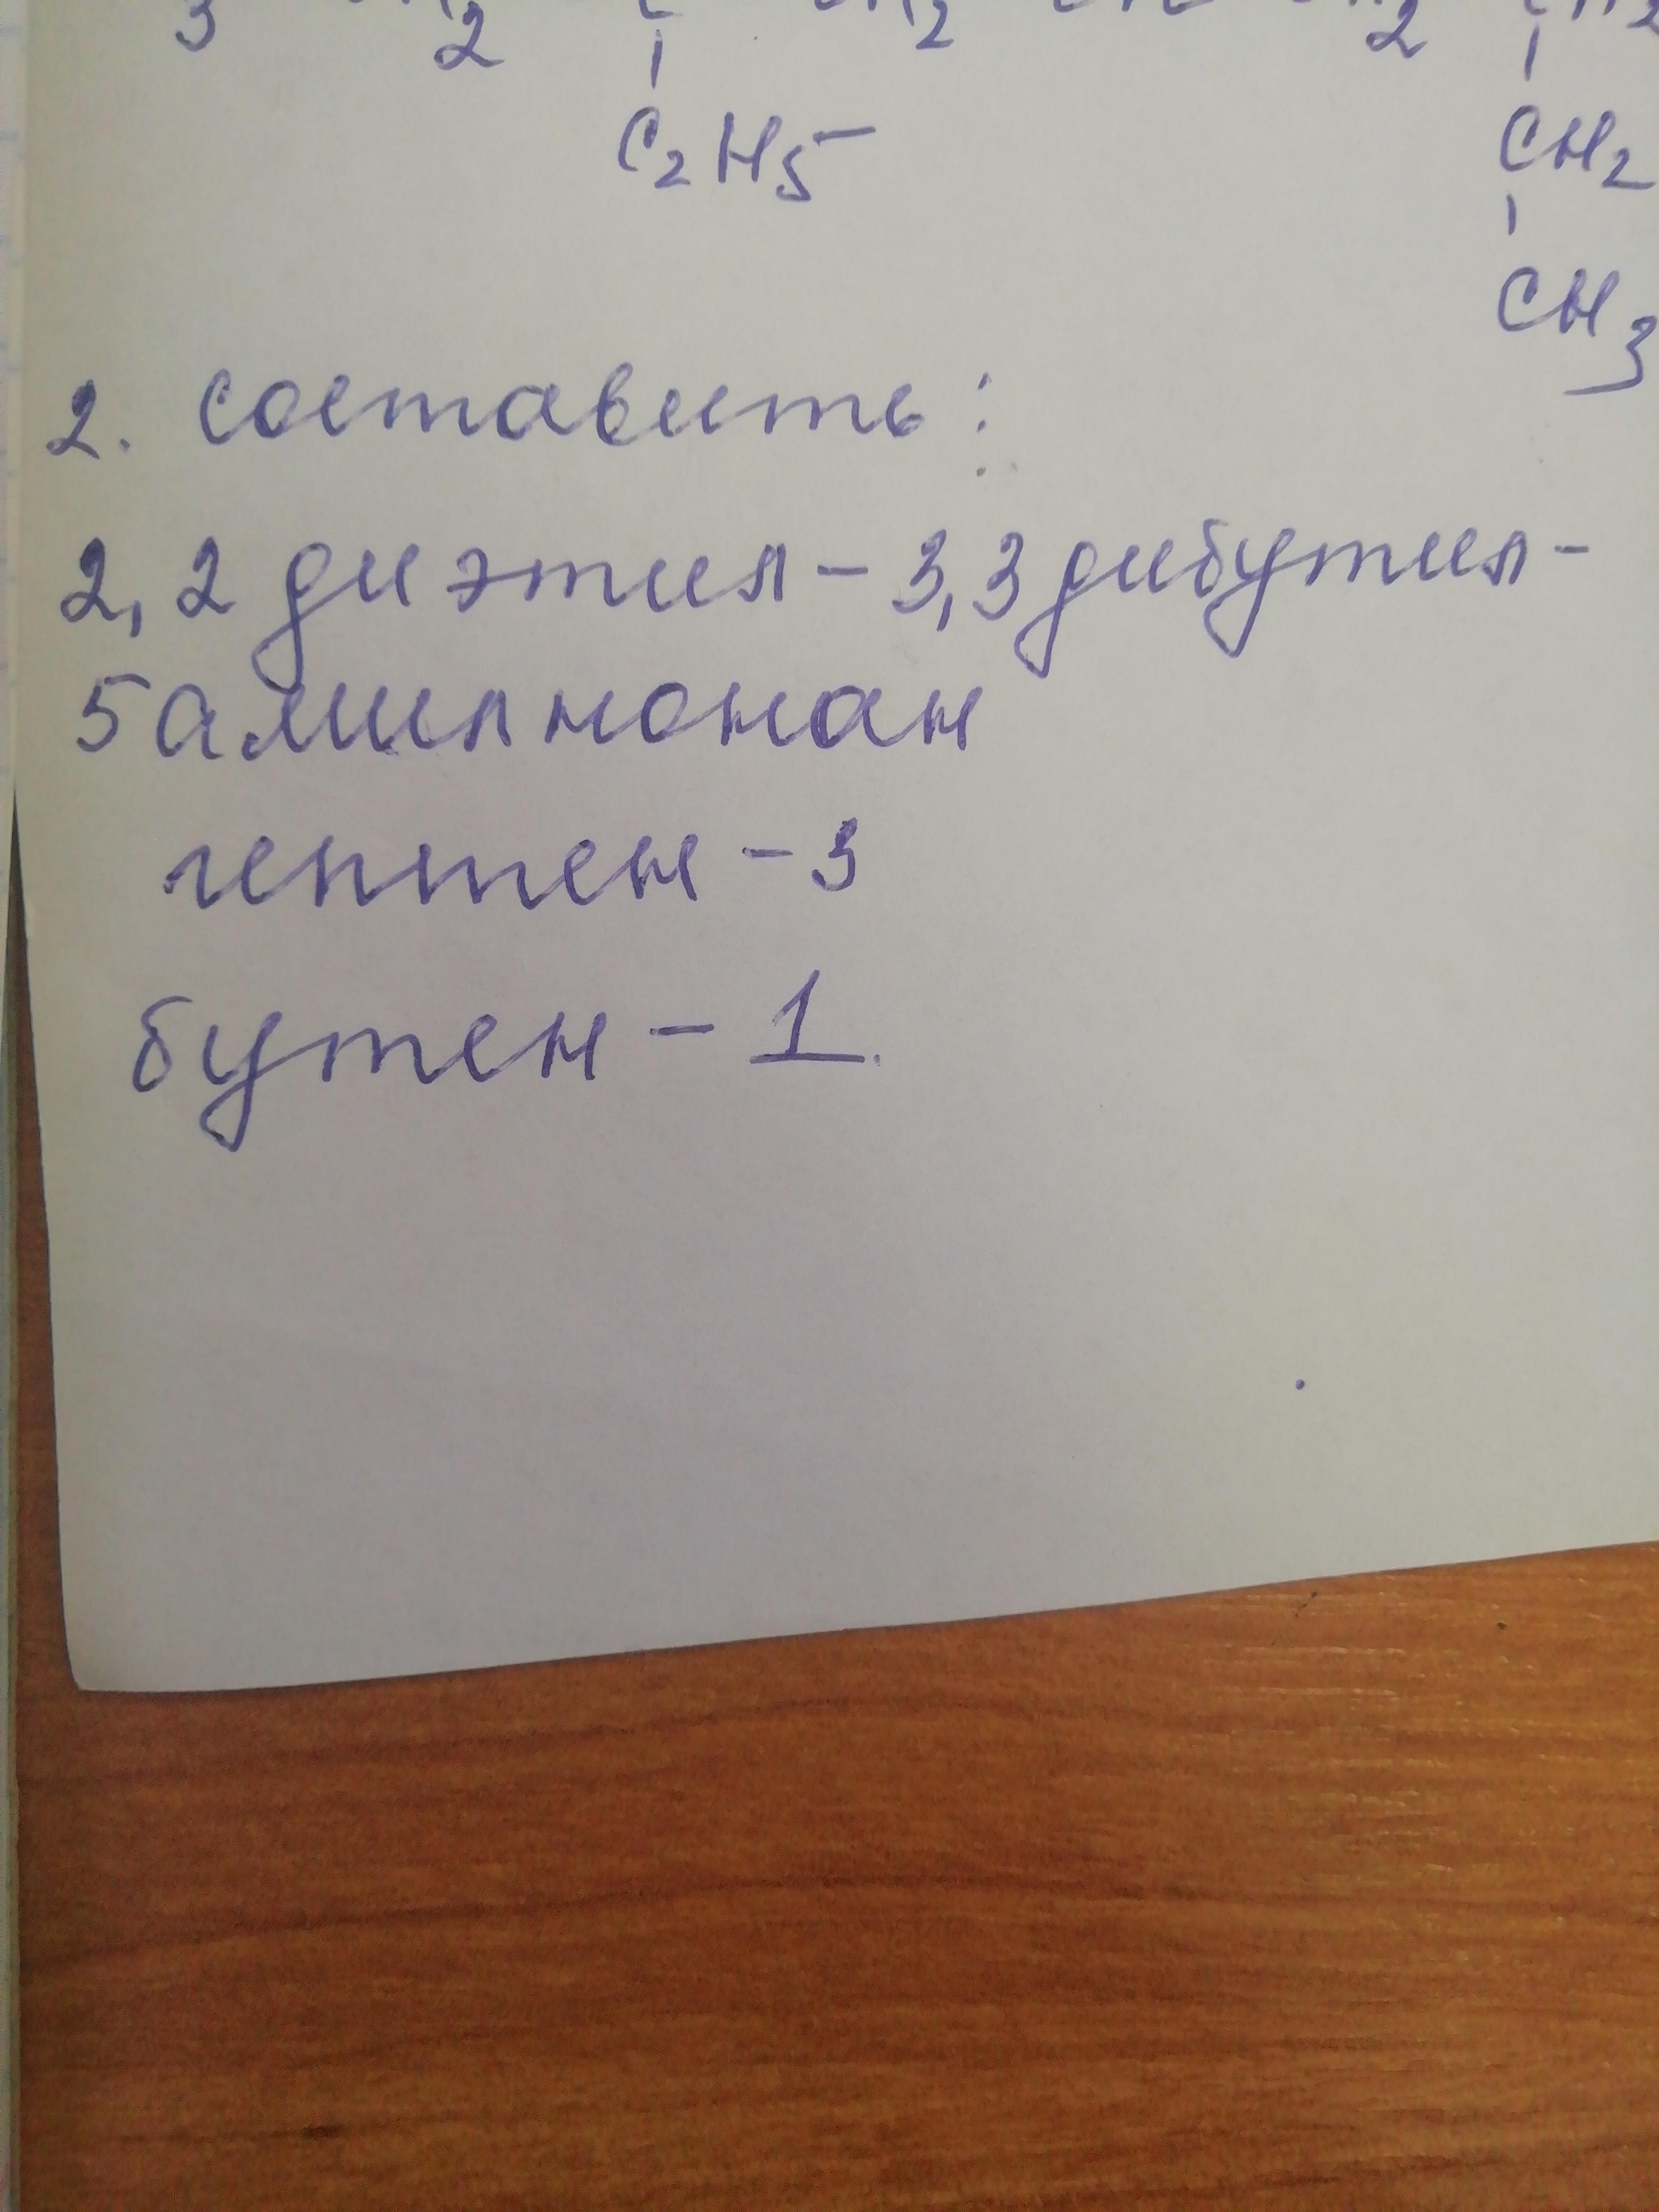 3 2 2 2 2
C₂H₅ CH₂
CH₃
2. составить:
2,2 диэтил - 3,3 дибутил -
5 амил нонан
гептен - 3
бутен - 1.